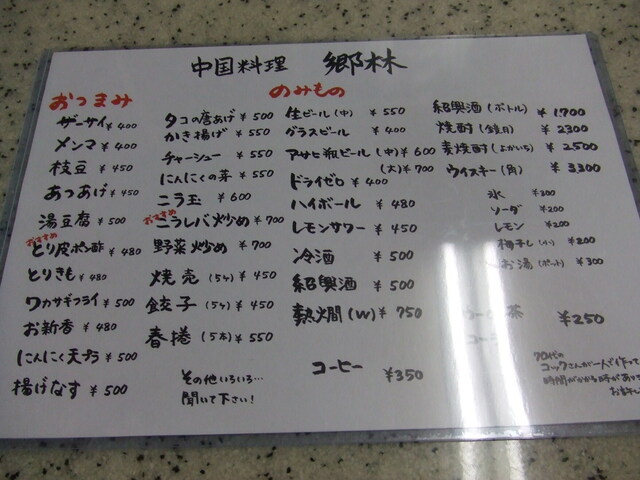 中国料理 郷林
おつまみ
ザーサイ ¥400
メンマ ¥400
枝豆 ¥450
あつあげ ¥450
湯豆腐 ¥500
おすすめ
とり皮ポン酢 ¥480
とりきも ¥480
ワカサギフライ ¥500
お新香 ¥480
にんにく天プラ ¥500
揚げなす ¥500
タコの唐あげ ¥500
かき揚げ ¥550
チャーシュー ¥550
にんにくの芽 ¥550
ニラ玉 ¥600
おすすめ
ニラレバ炒め ¥700
野菜炒め ¥700
焼売(5ヶ) ¥450
餃子(5ヶ) ¥450
春捲(5本) ¥550
その他いろいろ…
聞いて下さい!
のみもの
生ビール(中) ¥550
グラスビール ¥400
アサヒ瓶ビール(中)¥600
(大)¥700
ドライゼロ ¥400
ハイボール ¥480
レモンサワー ¥450
冷酒 ¥500
紹興酒 ¥500
熱燗(W) ¥750
コーヒー ¥350
紹興酒(ボトル) ¥1,700
焼酎 ¥2300
麦焼酎(よかいち) ¥2500
ウイスキー(角) ¥3,300
氷 ¥300
ソーダ ¥200
レモン ¥200
梅干し(小) ¥200
お湯(ポット) ¥300
茶 ¥250
コーラ
70代の
コックさんが一人で作って
時間がかかる時があって